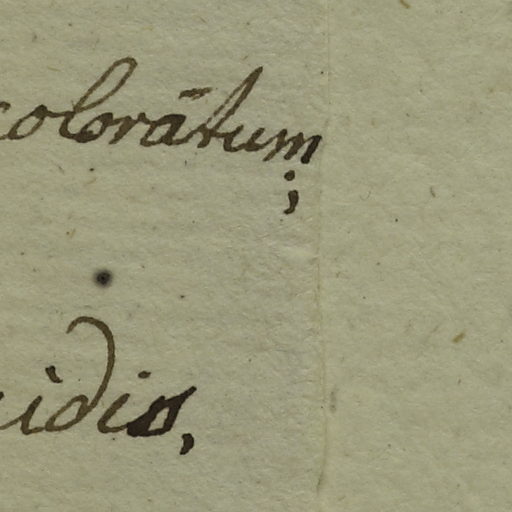 colorātum;
idis,